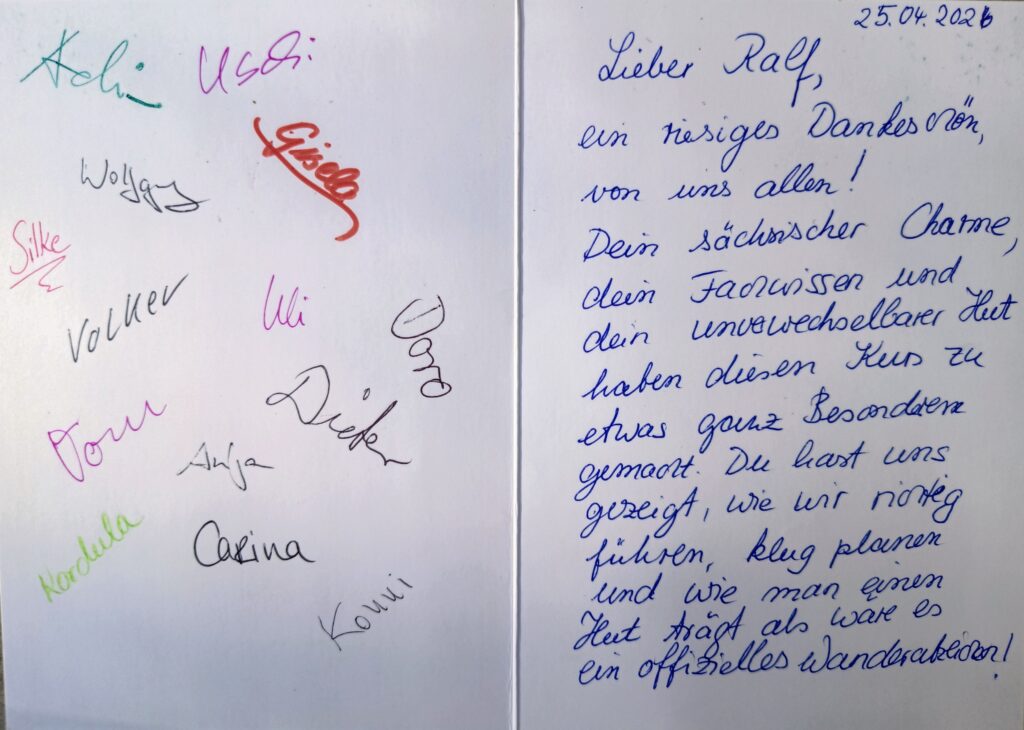 Achi
Uschi
Gisela
Wolfgang
Silke
Volker
Uli
Doro
Dieter
Tom
Anja
Kordula
Carina
Konni
25.04.2026
Lieber Ralf,
ein riesiges Dankeschön,
von uns allen!
Dein sächsischer Charme,
dein Fachwissen und
dein unverwechselbarer Hut
haben diesen Kurs zu
etwas ganz Besonderem
gemacht. Du hast uns
gezeigt, wie wir richtig
führen, klug planen
und wie man einen
Hut trägt als wäre es
ein offizielles Wanderabzeichen!